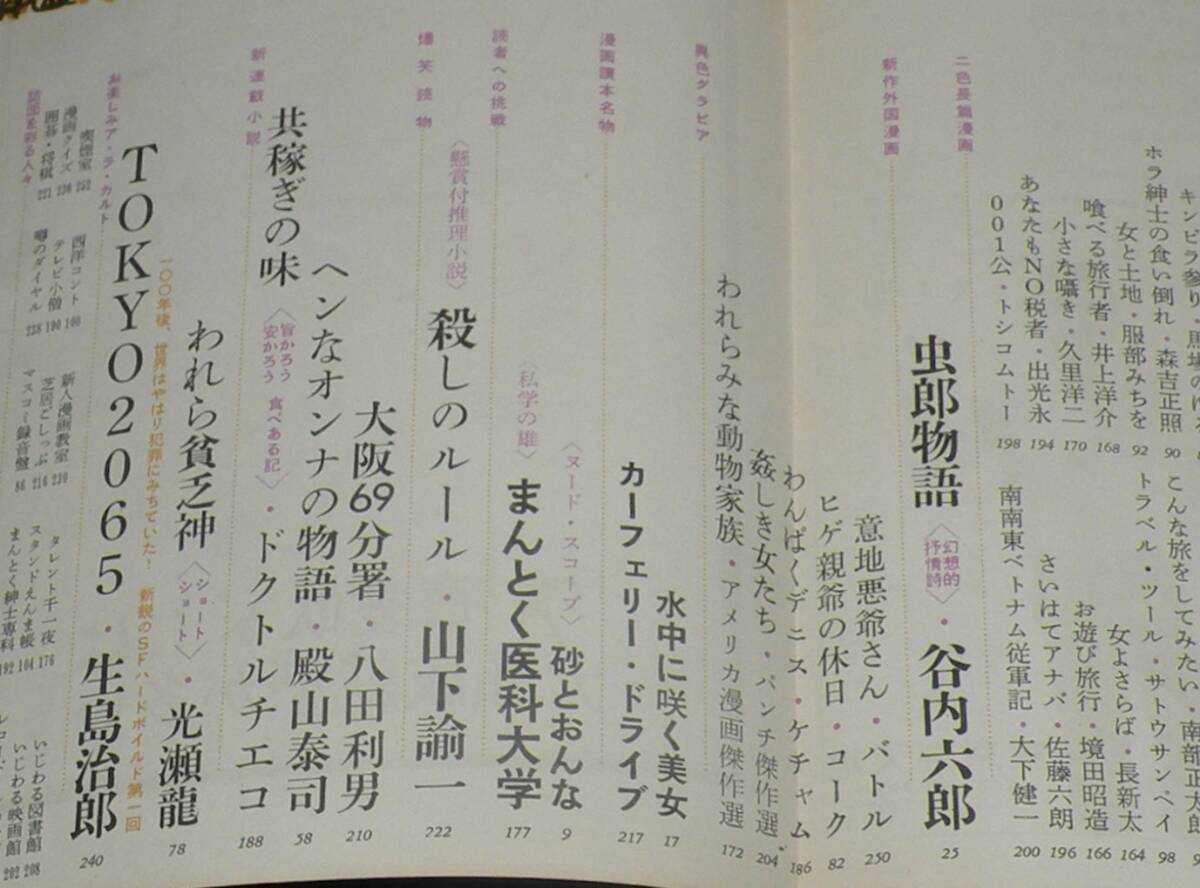 キンピラ参り・馬場のぼる
ホラ紳士の食い倒れ・森吉正照 90
女と土地・服部みちを 92
喰べる旅行者・井上洋介 168
小さな囁き・久里洋二 170
あなたもNO税者・出光永 194
001公・トシコムトー 198
こんな旅をしてみたい・南部正太郎
トラベル・ツール・サトウサンペイ 98
女よさらば・長新太 164
お遊び旅行・境田昭造 166
さいはてアナバ・佐藤六朗 196
南南東ベトナム従軍記・大下健一 200
二色長篇漫画
虫郎物語〈幻想的抒情詩〉・谷内六郎 25
新作外国漫画
意地悪爺さん・バトル 250
ヒゲ親爺の休日・コーク 82
わんぱくデニス・ケチャム 186
姦しき女たち・パンチ傑作選 204
われらみな動物家族・アメリカ漫画傑作選 172
異色グラビア
水中に咲く美女 17
カーフェリー・ドライブ 217
漫画讀本名物
〈ヌード・スコープ〉砂とおんな 9
〈私学の雄〉まんとく医科大学 177
読者への挑戦
〈懸賞付推理小説〉殺しのルール・山下諭一 222
爆笑読物
大阪69分署・八田利男 210
ヘンなオンナの物語・殿山泰司 58
共稼ぎの味〈旨かろう安かろう食べある記〉・ドクトルチエコ 188
新連載小説
われら貧乏神〈ショートショート〉・光瀬龍 78
一〇〇年後、世界はやはり犯罪にみちていた! 新鋭のSFハードボイルド第一回
TOKYO2065・生島治郎 240
お楽しみア・ラ・カルト
喫煙室 252
漫画クイズ 236
囲碁・将棋 221
西洋コント 100
テレビ小僧 190
噂のダイヤル 238
新人漫画教室 230
芝居ごしっぷ 216
マスコミ録音盤 86
タレント千一夜 176
スタンドえんま帳 104
まんとく紳士専科 192
いじわる図書館 208
いじわる映画館 202
誌面を彩る人々